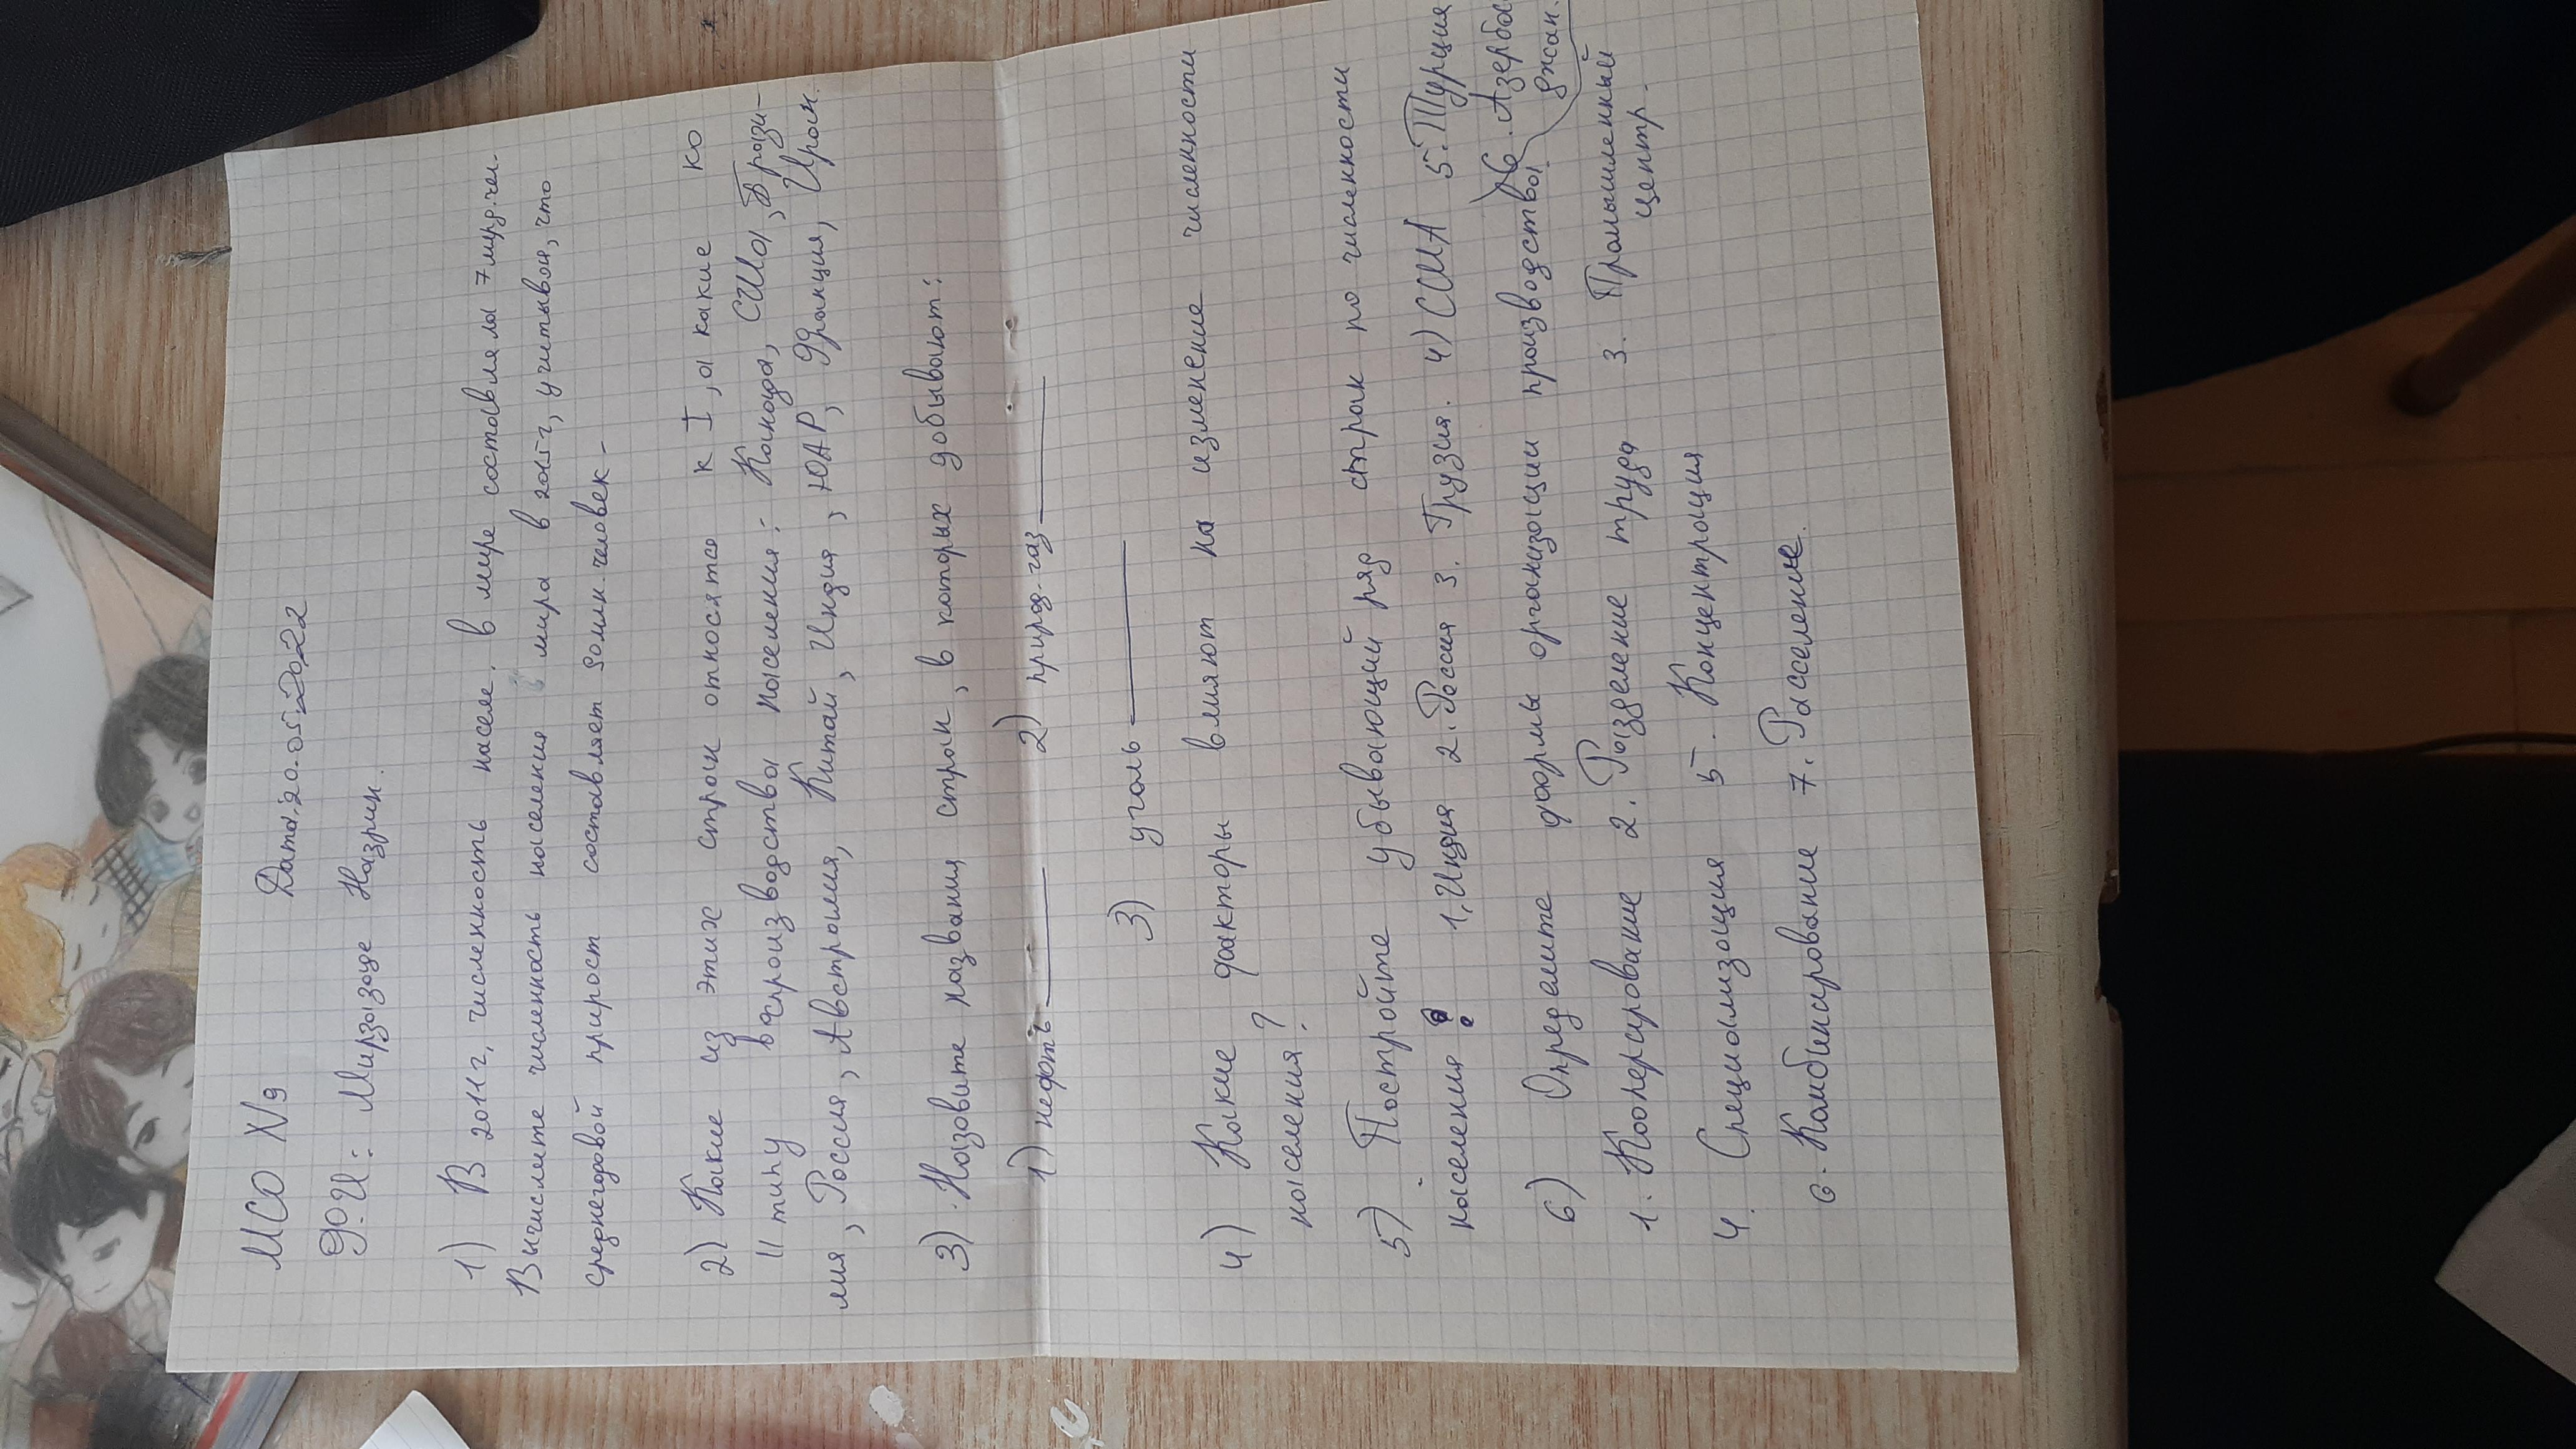 МСО №9 Дата: 20.05.2022
Ф.И: Мирзазаде Назрин.
1) В 2011г, численность насел. в мире составляла 7 млрд.чел.
Вычислите численность населения мира в 2015г, учитывая, что
среднегодовой прирост составляет 80млн.человек-
2) Какие из этих стран относятся к I, а какие ко
II типу воспроизводства населения: Канада, США, Брази-
лия, Россия, Австралия, Китай, Индия, ЮАР, Франция, Иран.
3). Назовите названия стран, в которых добывают:
1) нефть 2) природ.газ
3) уголь
4) Какие факторы влияют на изменение численности
населения?
5) Постройте убывающий ряд стран по численности
населения? 1. Индия 2. Россия 3. Грузия. 4) США 5. Турция
6. Азербай
джан.
6) Определите формы организации производства!
1. Кооперирование 2. Разделение труда 3. Промышленный
центр.
4. Специализация 5. Концентрация
6. Комбинирование 7. Расселение.